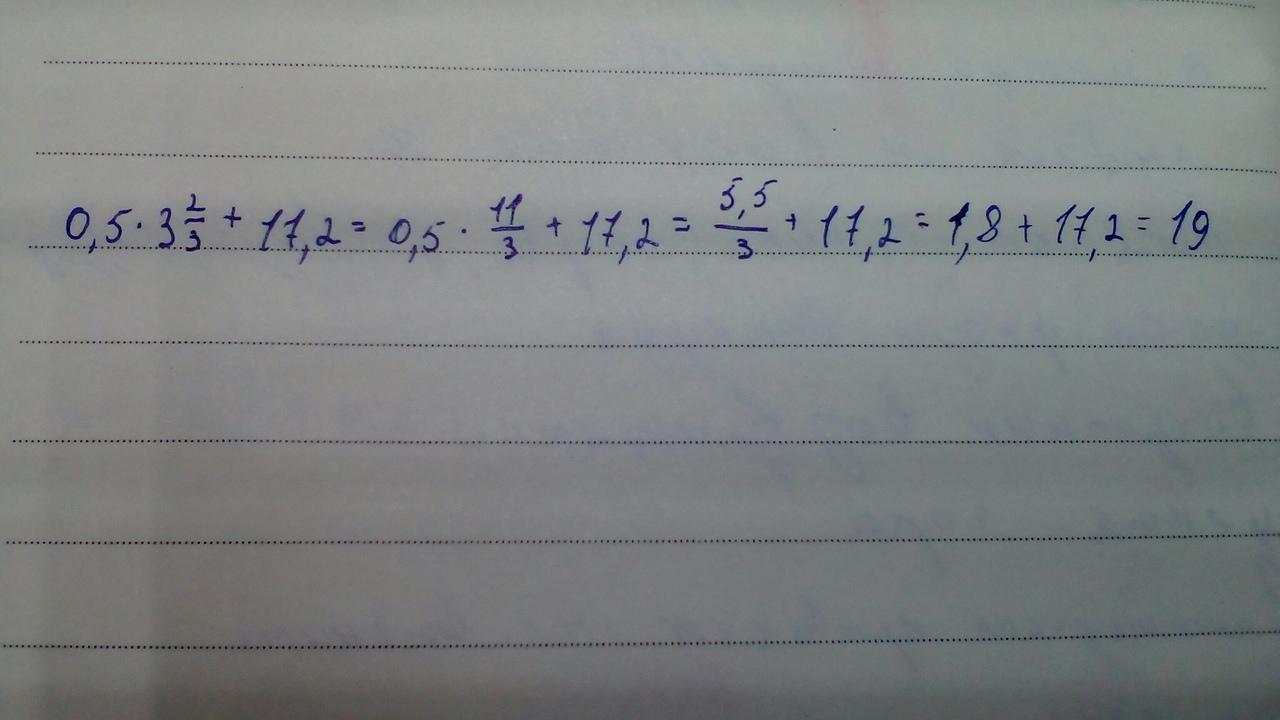 0,5 · 3 2/3 + 17,2 = 0,5 · 11/3 + 17,2 = 5,5/3 + 17,2 = 1,8 + 17,2 = 19